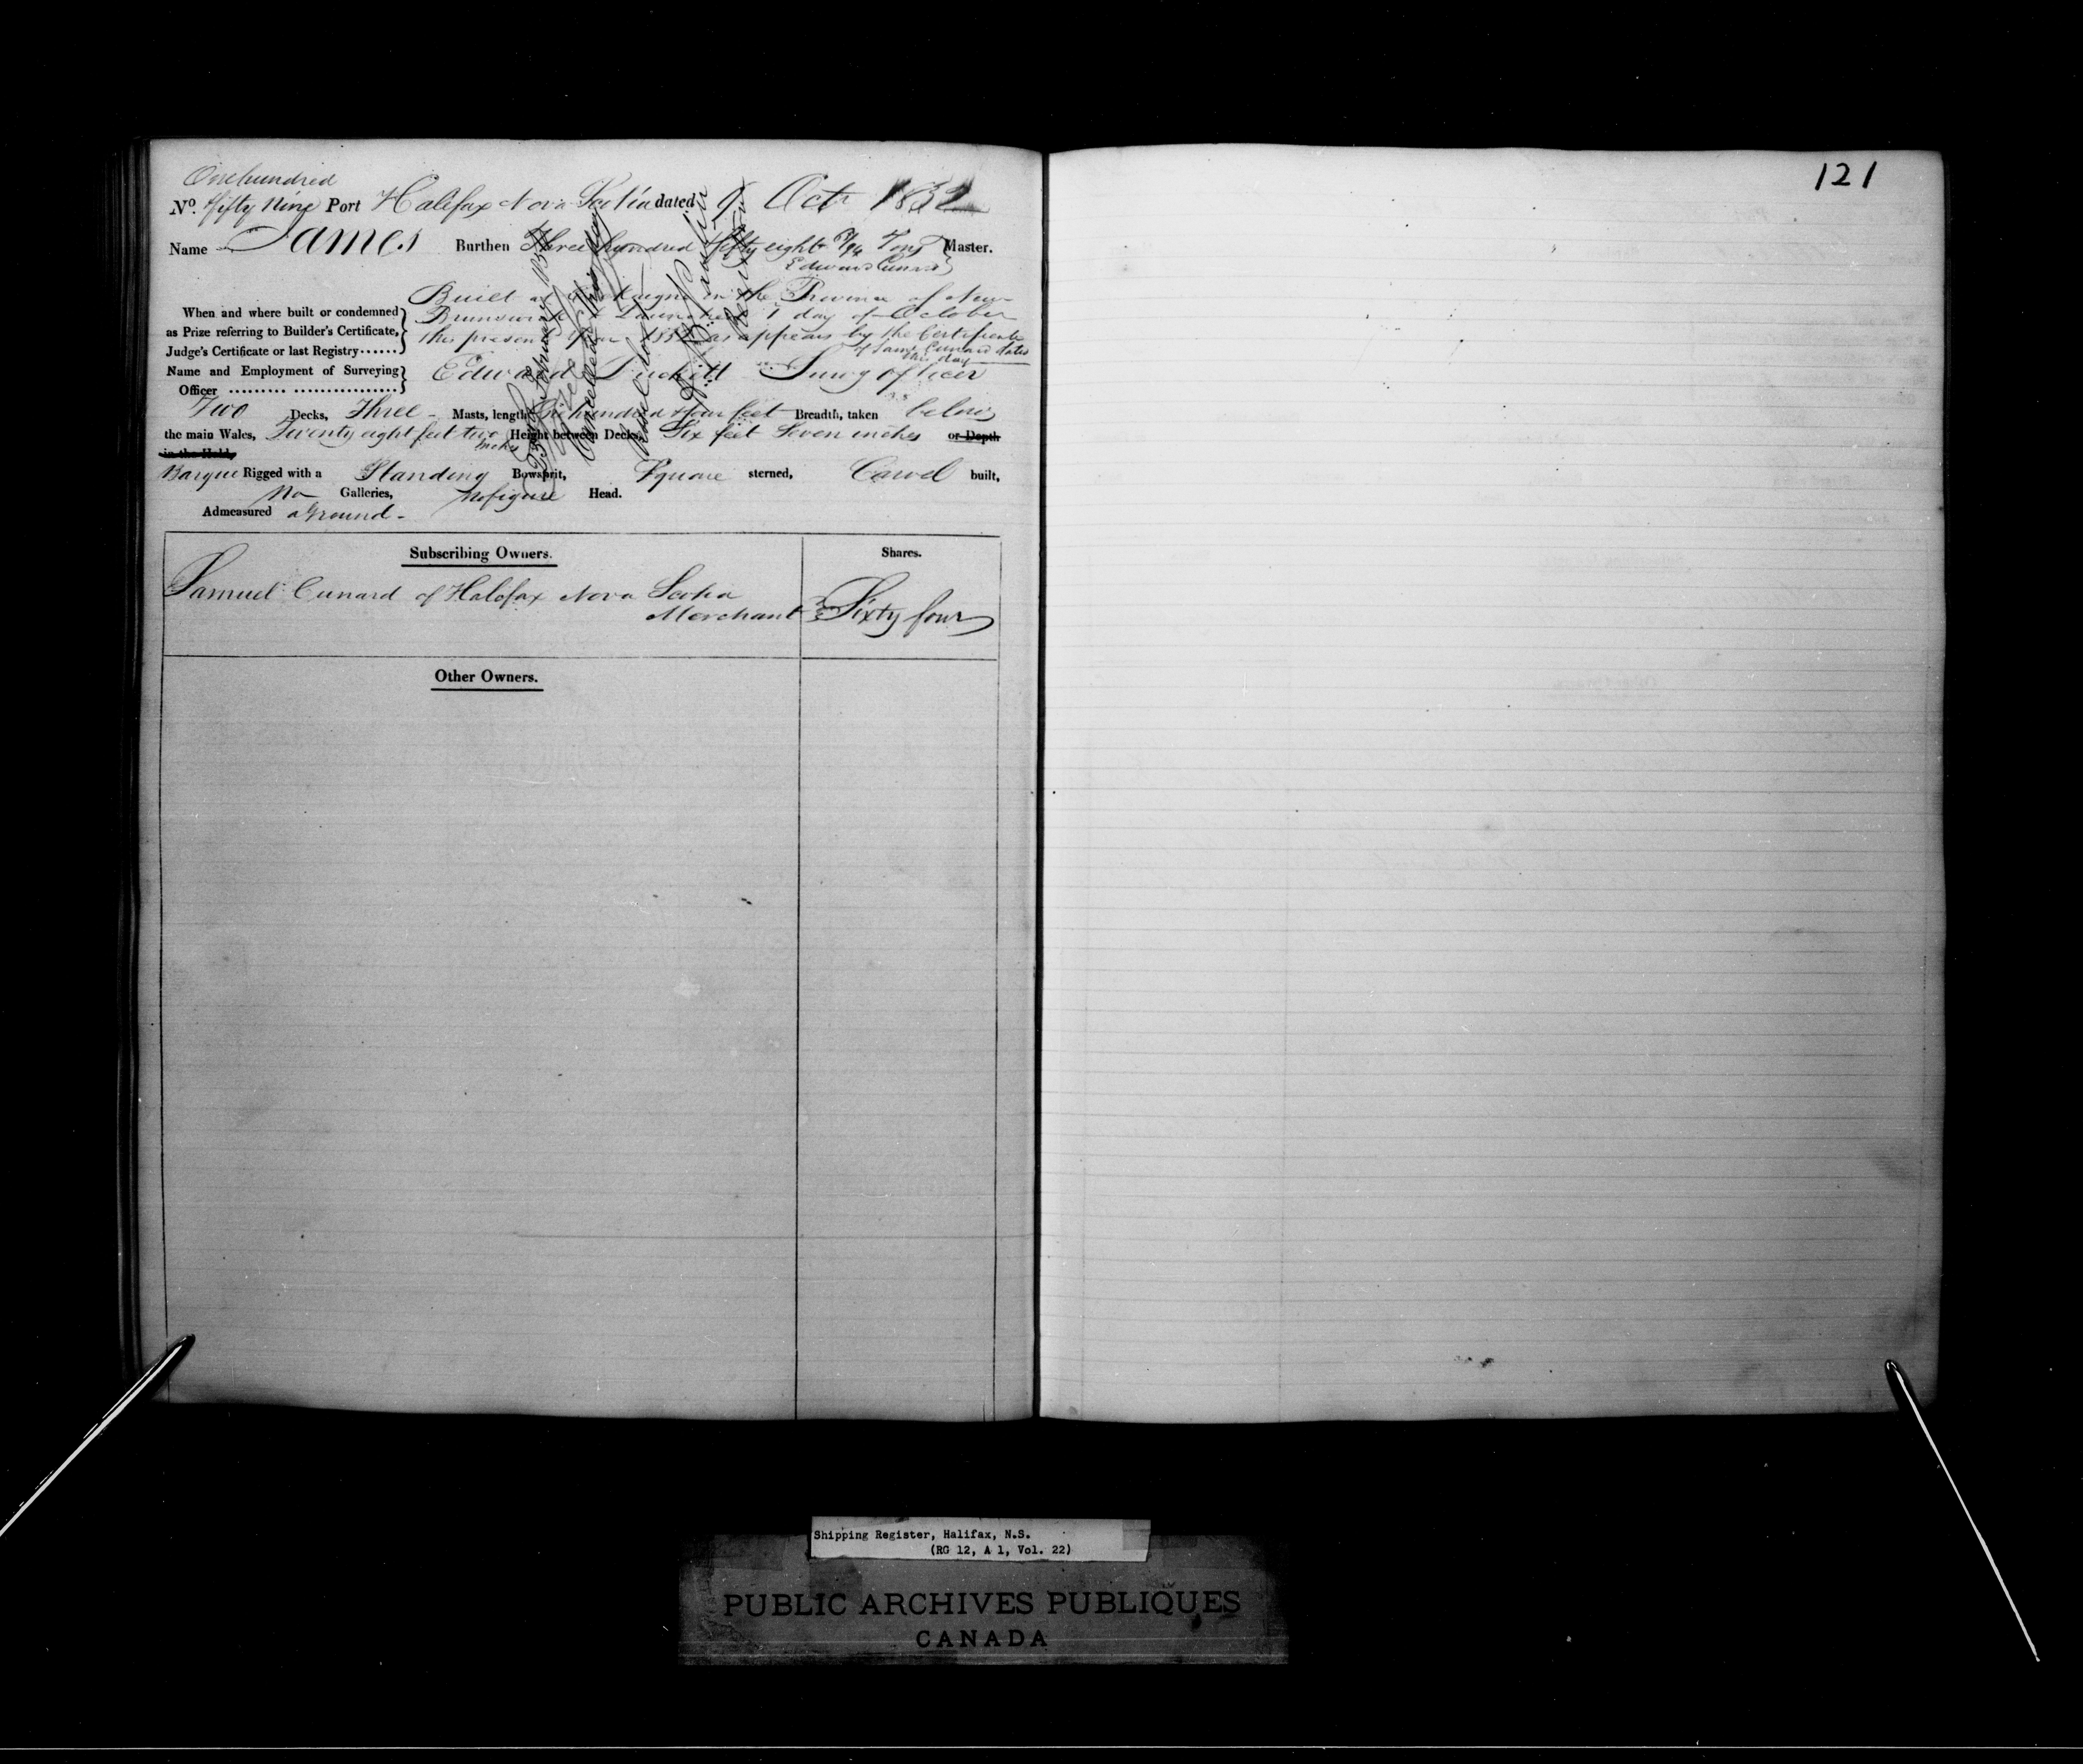 121
One hundred
No. fifty Nine Port Halifax Nova Scotia dated 9 Oct 1832
Name James Burthen Three hundred & fifty eight Tons Master.
Edward Cunard
Built at in the Province of New
When and where built or condemned
Brunswick & Launched 1 day of October
as Prize referring to Builder's Certificate,
this present year 1832 as appears by the Certificate
Judge's Certificate or last Registry......
of Saml Cunard dated
this day
Name and Employment of Surveying
Edward Duckett Survg officer
Officer
Two Decks, Three - Masts, length One hundred & four feet Breadth, taken below
the main Wales, Twenty eight feet two Height between Decks, Six feet Seven inches or Depth
inches
in the Hold,
Barque Rigged with a Standing Bowsprit, Square sterned, Carvel built,
No Galleries, no figure Head.
Admeasured a Ground -
Subscribing Owners. Shares.
Samuel Cunard of Halifax Nova Scotia
Merchant Sixty four
Other Owners.
Shipping Register, Halifax, N.S.
(RG 12, A 1, Vol. 22)
PUBLIC ARCHIVES PUBLIQUES
CANADA